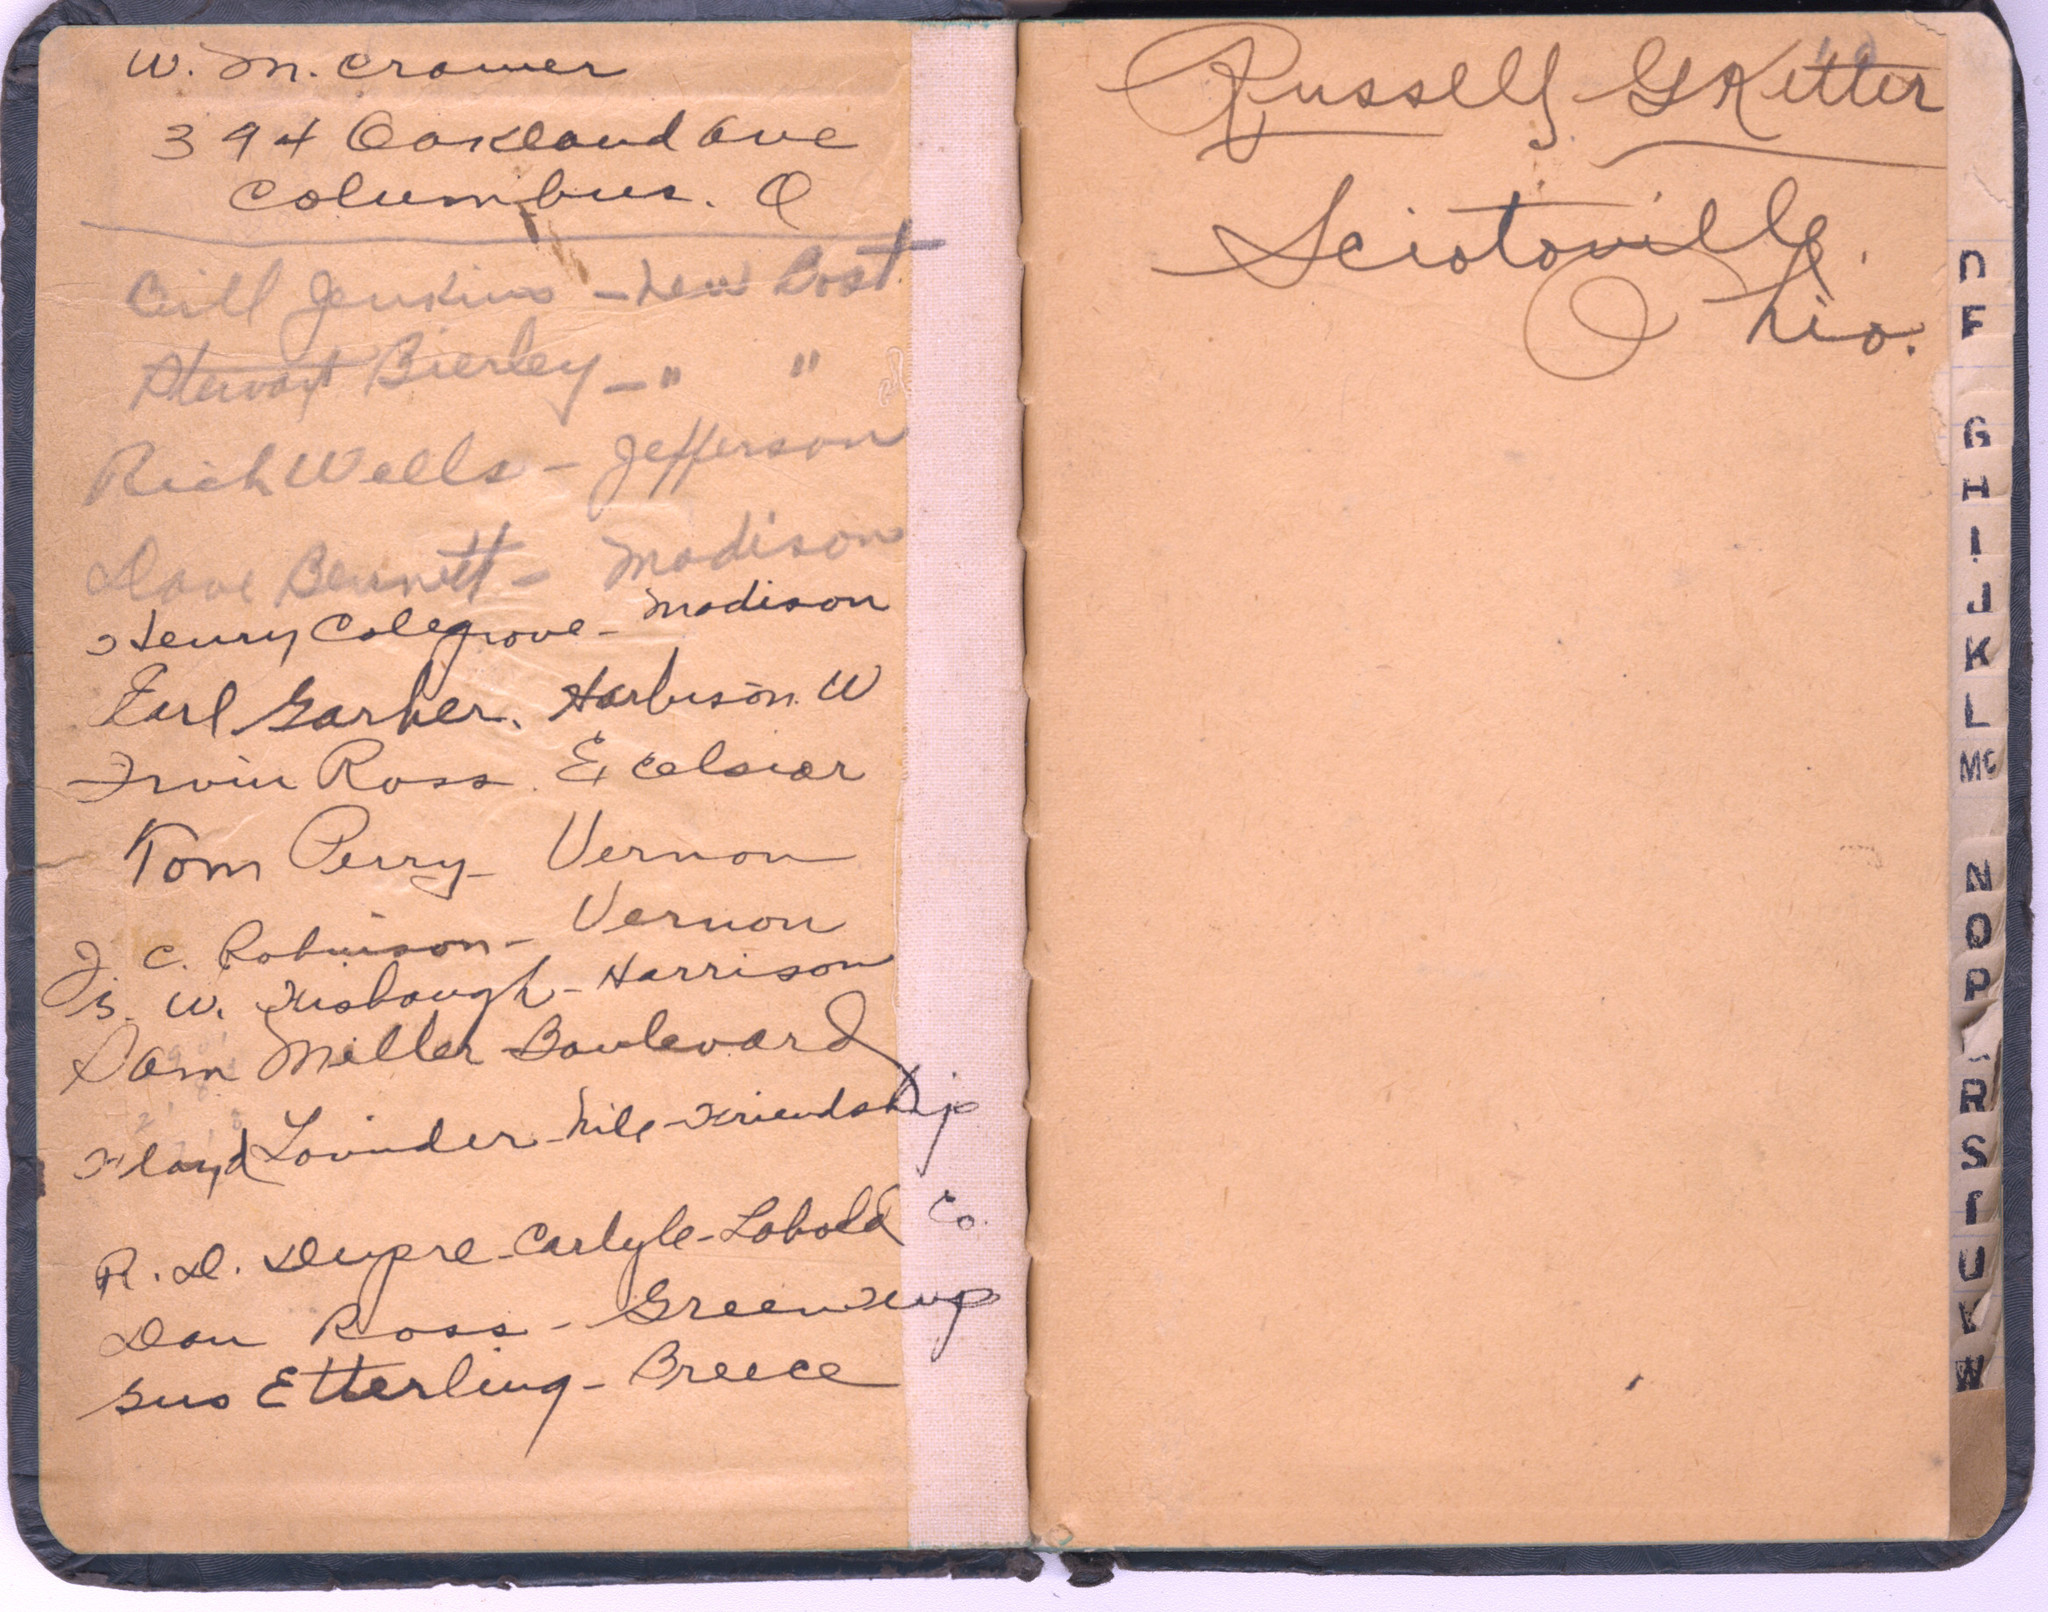 W. M. Cramer
394 Oakland Ave
Columbus. O
Cill Jenkins - New Bost.
Stewart Bierley - " "
Rich Wells - Jefferson
Dave Bennett - Madison
Henry Colegrove - Madison
Earl Garher. Harbison. W
Irvin Ross. Excelsior
Tom Perry - Vernon
J. C. Robinson - Vernon
S. W. Fisbaugh - Harrison
Sam Miller - Boulevard
Floyd Lovinder - Nile - Friendship
R. D. Dupre - Carlyle - Labold Co.
Dan Ross - Greenup
Gus Etterling - Breece
Russell G Kitter
Sciotoville.
Ohio.
D
E
G
H
I
J
K
L
Mc
N
O
P
R
S
T
U
V
W